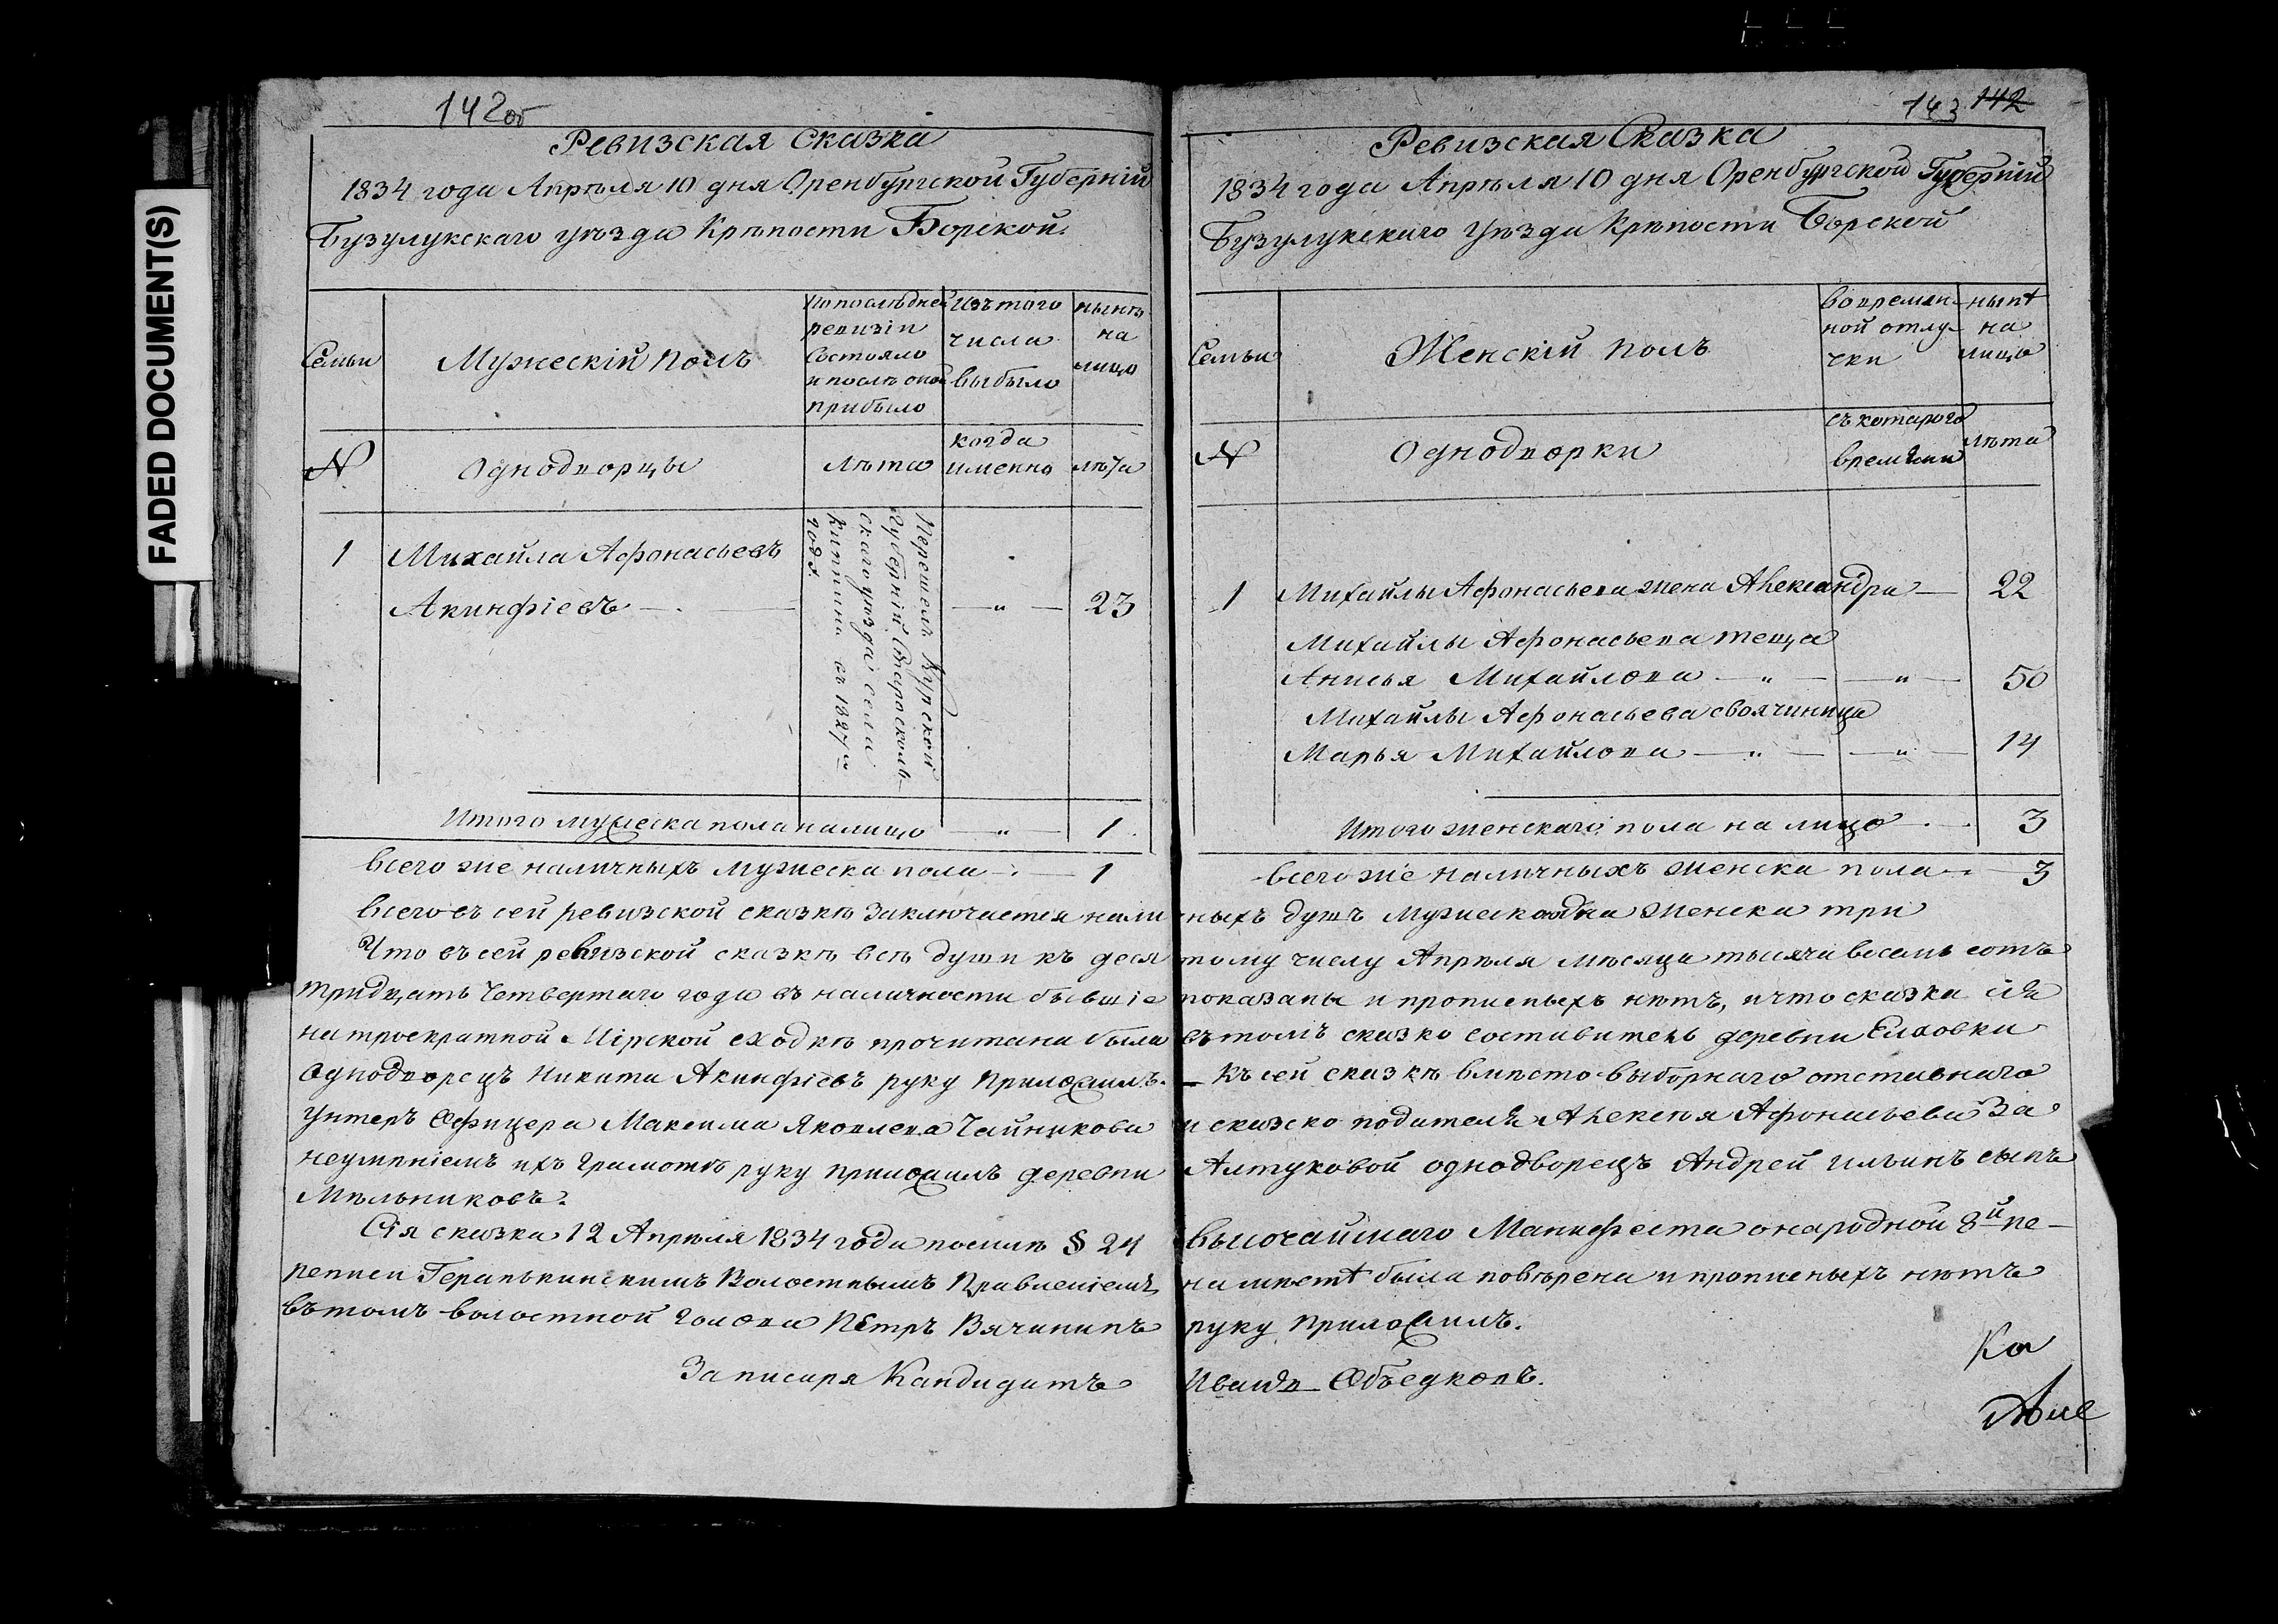 FADED DOCUMENT(S)
142 об
Ревизская Сказка
1834 года Апрѣля 10 дня Оренбургской Губерніи
Бузулукскаго уѣзда Крѣпости Борской.
Семьи
Мужескій полъ
По послѣдней
ревизіи
состояло
и послѣ оной
прибыло
Изъ того
числа
выбыло
нынѣ
на
лицо
№
Однодворцы
лѣта
когда
именно
лѣта
1
Михайла Афонасьевъ
Акинфіевъ
23
Перешелъ Курской
Губерніи Староскаль-
скаго уѣзда села
съ 1827 го
года.
Итого мужеска пола на лицо 1
Всего же наличныхъ мужеска пола 1
143 142
Ревизская Сказка
1834 года Апрѣля 10 дня Оренбургской Губерніи
Бузулукскаго уѣзда Крѣпости Борской
Семьи
Женскій полъ
Во времян-
ной отлу-
чки
нынѣ
на
лицо
№
Однодворки
съ котараго
времяни
лѣта
1 Михайлы Афонасьева жена Александра 22
Михайлы Афонасьева теща
Анисья Михайлова 50
Михайлы Афонасьева своячиница
Марья Михайлова 14
Итого женскаго пола на лицо 3
Всего же наличныхъ женска пола 3
Всего въ сей ревизской сказкѣ заключается нали чныхъ душъ мужеска одна женска три
Что въ сей ревизской сказкѣ всѣ души къ деся тому числу Апрѣля мѣсяца тысяча восемь сотъ
тридцать четвертаго года въ наличности бывшіе показаны и прописныхъ нѣтъ, и что сказка сія
на троекратной Мірской сходкѣ прочитана была въ томъ сказко составитель деревни Елховки
Однодворецъ Никита Акинфіевъ руку приложилъ. Къ сей сказкѣ вмѣсто выборнаго отставнаго
Унтеръ Офицера Максима Яковлева Чайникова и сказско подателя Алексѣя Афонасьева За
неумѣніемъ ихъ грамотѣ руку приложилъ деревни Алтуховой однодворецъ Андрей Ильинъ сынъ
Мѣльниковъ.
Сія сказка 12 Апрѣля 1834 года по силѣ § 24 высочайшаго Манифеста о народной 8й пе-
реписи Геранькинскимъ Волостнымъ Правленіемъ на мѣстѣ была повѣрена и прописныхъ нѣтъ
въ томъ волостной голова Петръ Вячинипъ руку приложилъ.
За писаря Кандидатъ Иванъ Объедковъ.
Ко
Але